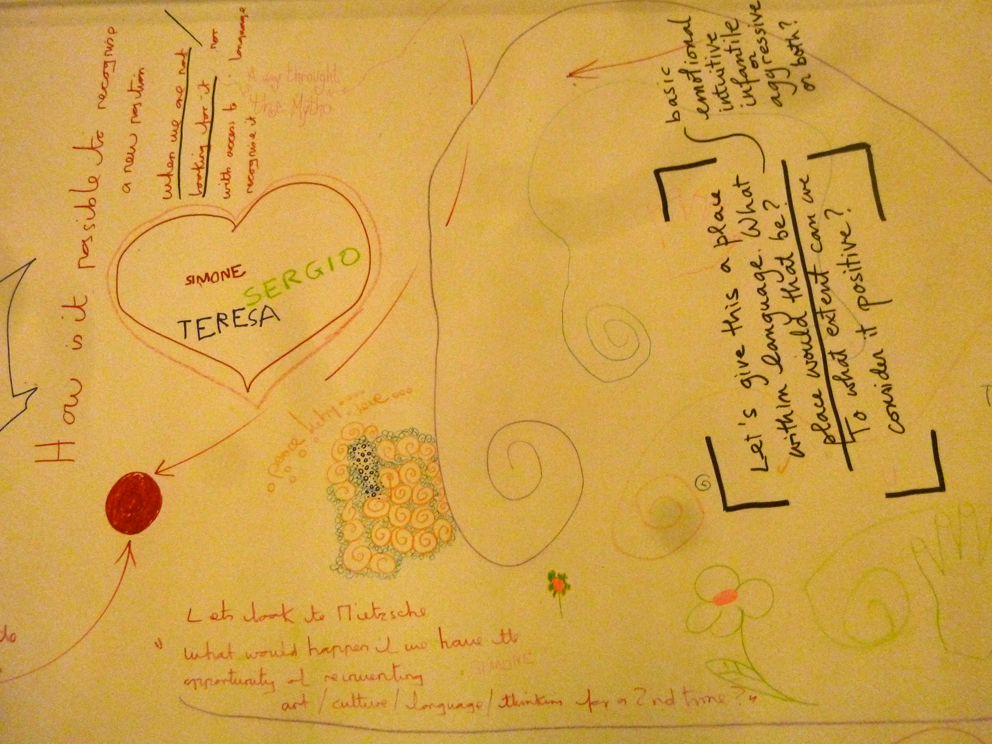 How is it possible to recognise
a new position
when we are not
looking for it / nor
with access to language
recognise it
SIMONE
SERGIO
TERESA
Let's give this a place
within language. What
place would that be?
To what extent can we
consider it positive?
basic
emotional
intuitive
infantile
or
aggressive
or both?
Lets look to Nietzsche
"what would happen if we have the
opportunity of reinventing
SIMONE
art/culture/language/thinking for a 2nd time?"